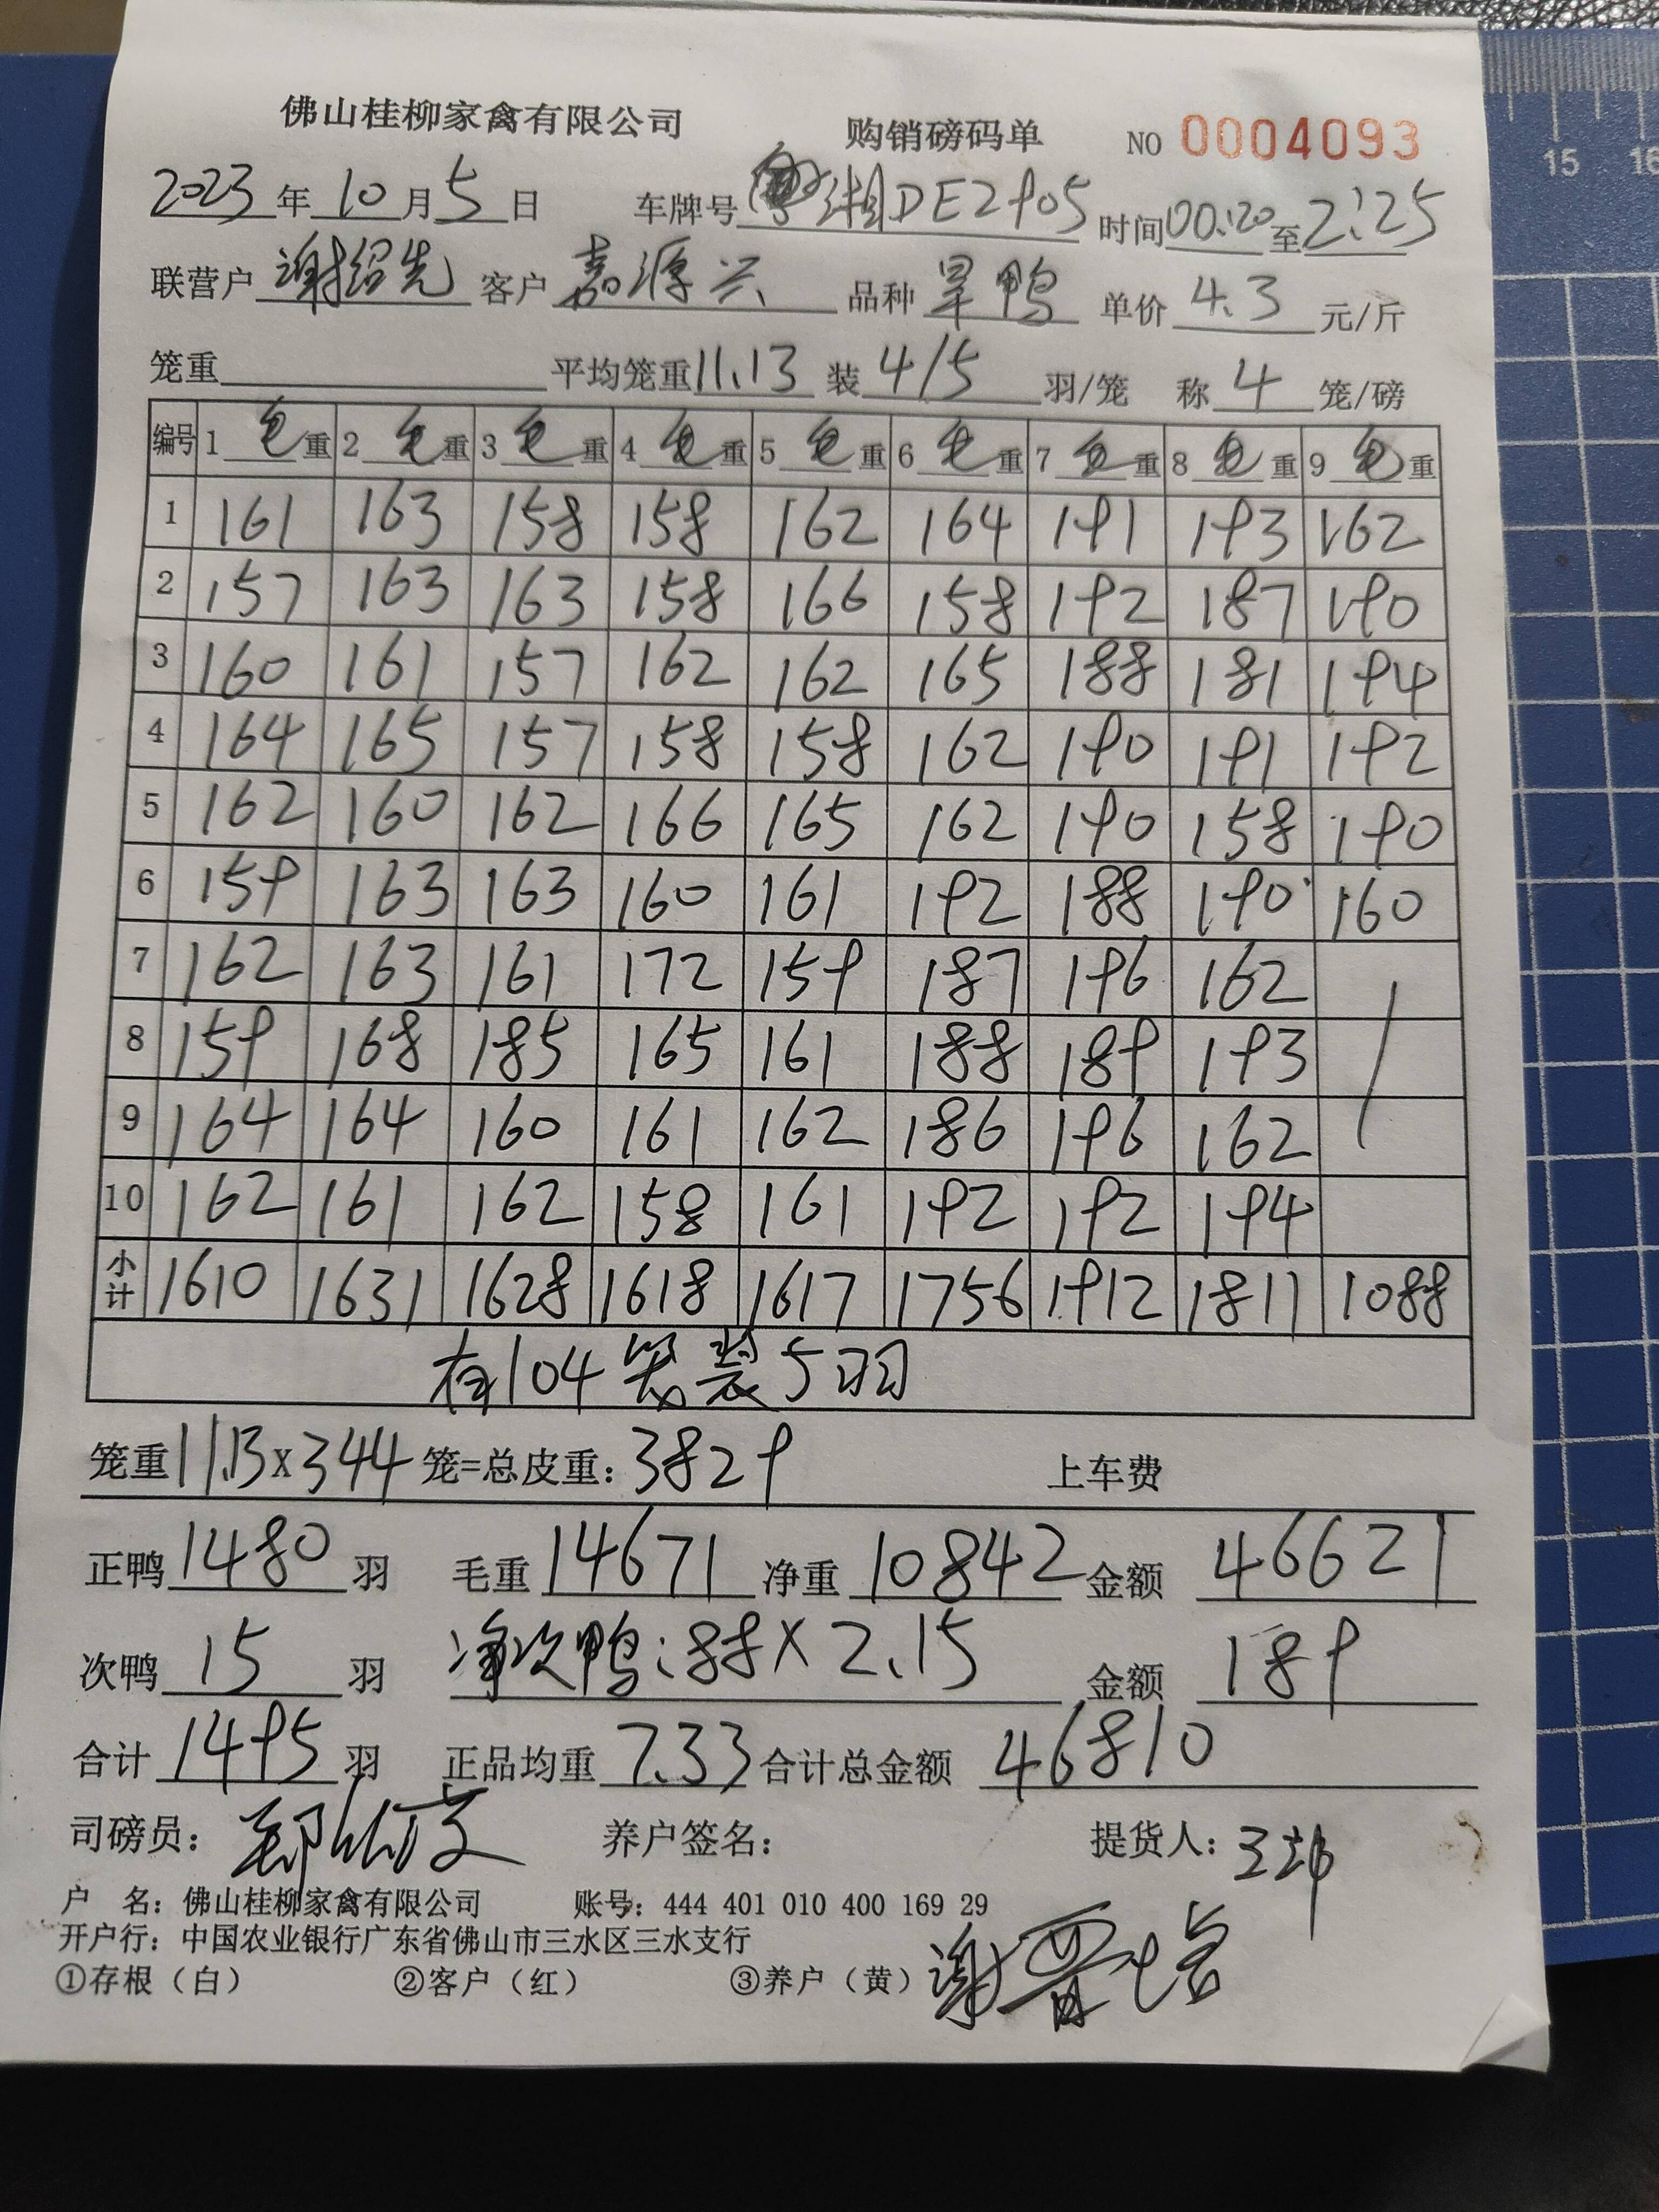 佛山桂柳家禽有限公司 购销磅码单 NO 0004093
2023年10月5日 车牌号 湘DE2905 时间00:20至2:25
联营户 谢绍先 客户 嘉源兴 品种 旱鸭 单价 4.3 元/斤
笼重 平均笼重11.13 装 4/5 羽/笼 称 4 笼/磅
编号 1 毛重 2 毛重 3 毛重 4 毛重 5 毛重 6 毛重 7 毛重 8 毛重 9 毛重
1 161 163 158 158 162 164 191 193 162
2 157 163 163 158 166 158 192 187 190
3 160 161 157 162 162 165 188 181 194
4 164 165 157 158 158 162 190 191 192
5 162 160 162 166 165 162 190 158 190
6 159 163 163 160 161 192 188 190 160
7 162 163 161 172 159 187 196 162
8 159 168 185 165 161 188 189 193
9 164 164 160 161 162 186 196 162
10 162 161 162 158 161 192 192 194
小计 1610 1631 1628 1618 1617 1756 1912 1811 1088
有104笼装5羽
笼重11.13x344笼=总皮重：3829 上车费
正鸭1480羽 毛重14671 净重10842 金额 46621
次鸭 15 羽 净次鸭：88X2.15 金额 189
合计1495羽 正品均重 7.33 合计总金额 46810
司磅员： 养户签名： 提货人：
户 名：佛山桂柳家禽有限公司 账号：444 401 010 400 169 29
开户行：中国农业银行广东省佛山市三水区三水支行
①存根（白） ②客户（红） ③养户（黄）